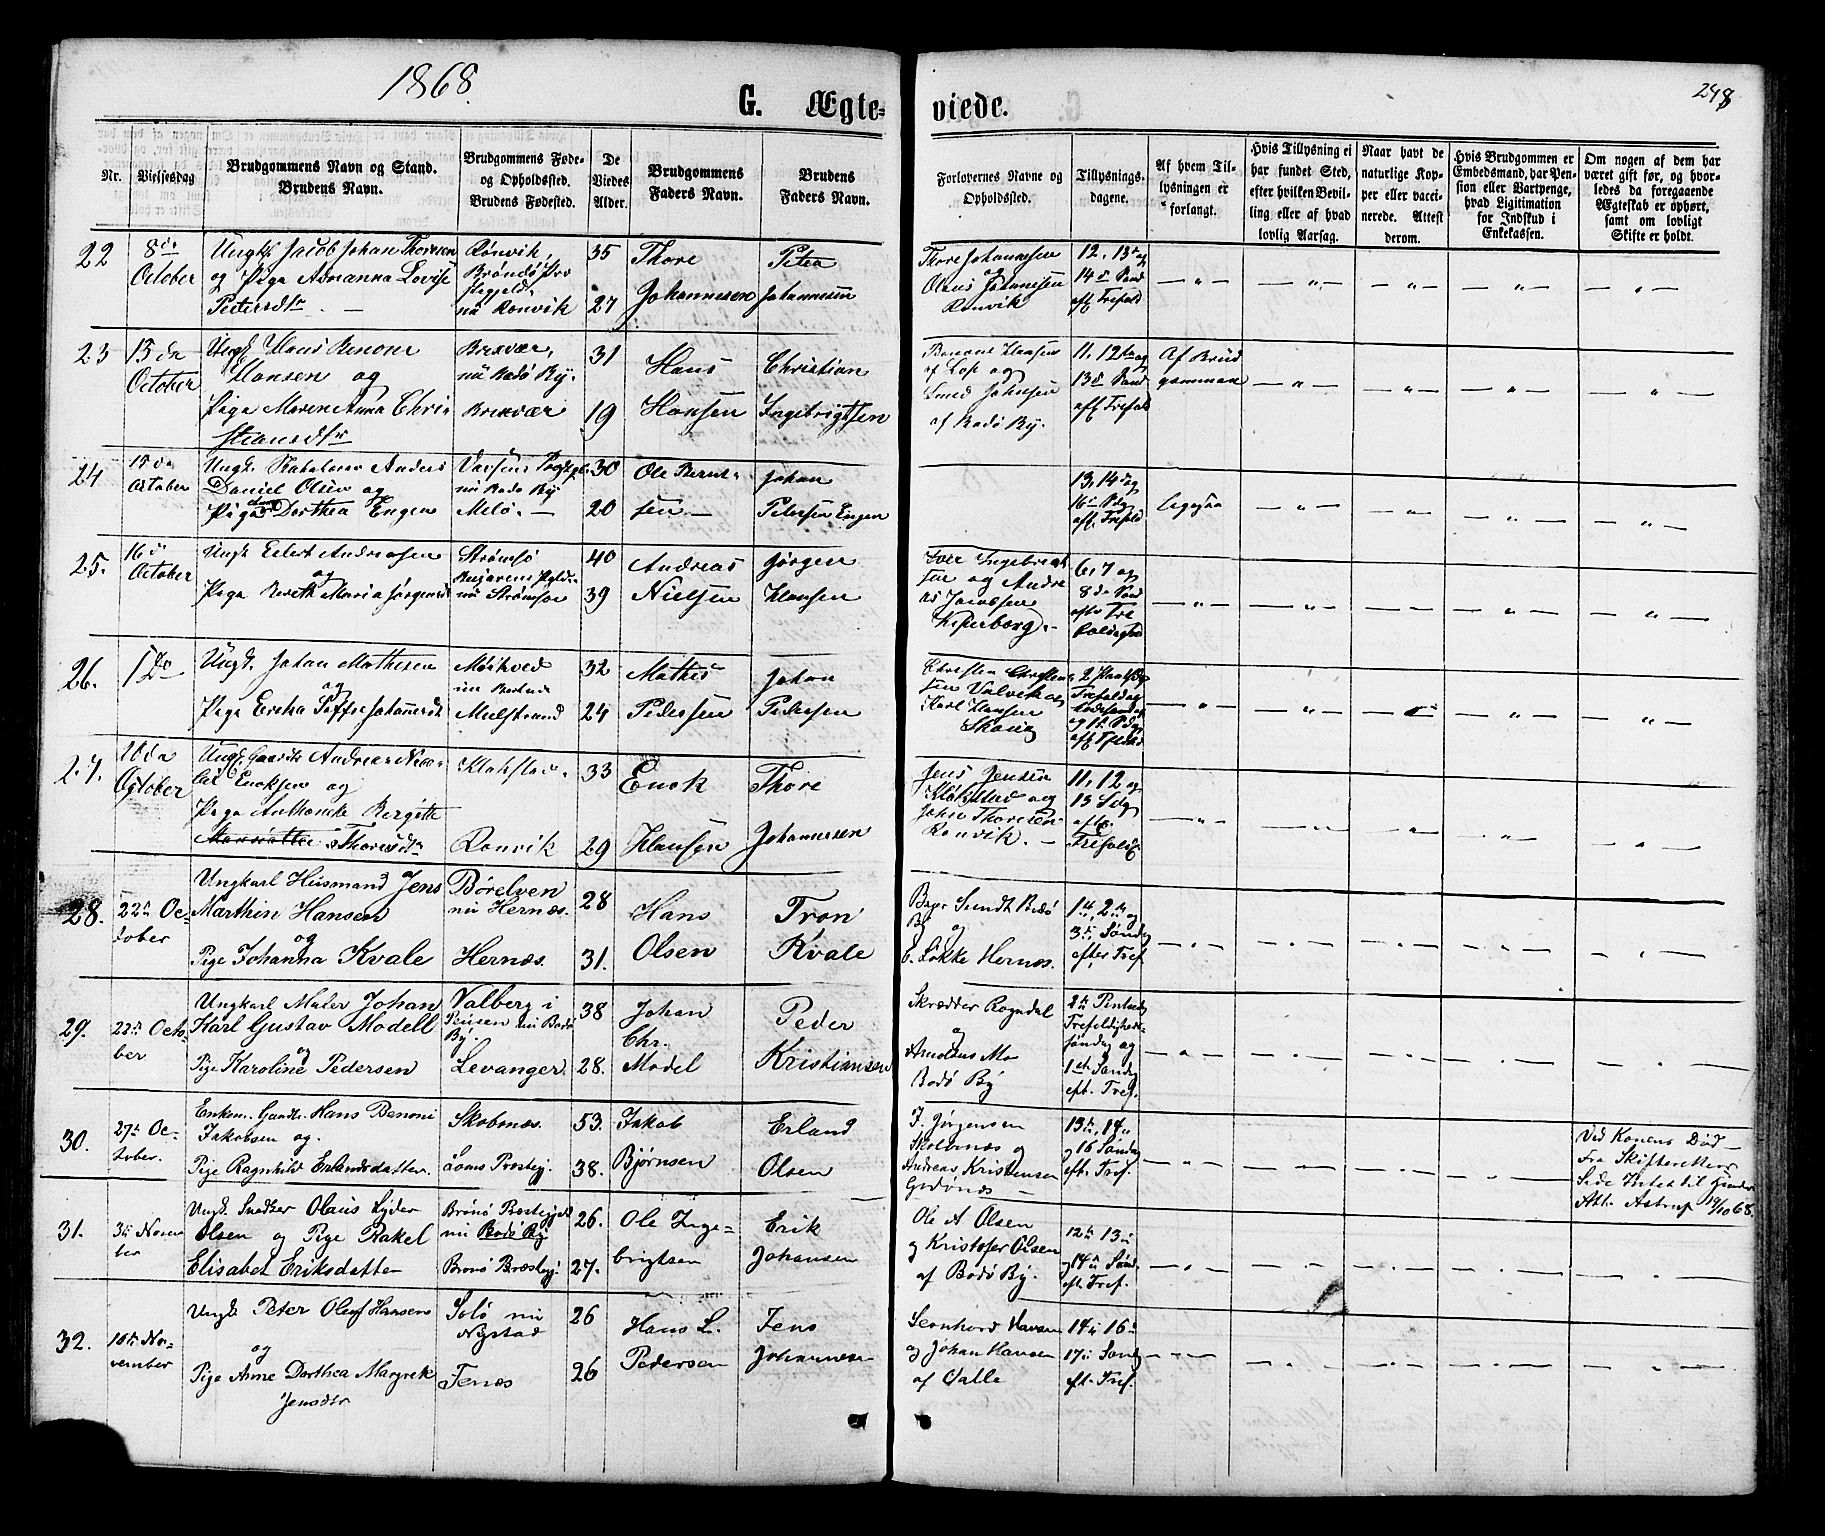 1868.
G. Ægteviede.
248
Nr.
Vielsesdag
Brudgommens Navn og Stand.
Brudens Navn.
Brudgommens Føde-
og Opholdssted.
Brudens Fødested.
De
Viedes
Alder.
Brudgommens
Faders Navn.
Brudens
Faders Navn.
Forlovernes Navne og
Opholdssted.
Tillysnings-
dagene.
Af hvem Til-
lysningen er
forlangt.
Hvis Tillysning ei
har fundet Sted,
efter hvilken Bevil-
ling eller af hvad
lovlig Aarsag.
Naar havt de
naturlige Kop-
per eller vacci-
nerede. Attest
derom.
Hvis Brudgommen er
Embedsmand, har Pen-
sion eller Vartpenge,
hvad Legitimation
for Indskud i
Enkekassen.
Om nogen af dem har
været gift før, og hvor-
ledes da foregaaende
Ægteskab er ophørt,
samt om lovligt
Skifte er holdt.
22
8de
October
Ungk. Jacob Johan Thoresen
og Pige Adrianna Lovise
Petersdtr
Rønvik,
Brøndø Præ
stegjeld
nu Rønvik
35
27
Thore
Johannesen
Peter
Johannesen
Thore Johannesen
og
Olaus Johannesen
Rønvik
12, 13de og
14de Sønd
eft Trefold
23
15da
October
Ungk. Hans Benone
Hansen og
Pige Maren Anna Chri-
stiansdtr
Brexvær,
nu Bodø By.
Brexvær
31
19
Hans
Hansen
Christian
Ingebrigtsen
Benone Hansen
af Lop og
Smed Johnsen
af Bodø By.
11, 12te og
13de Sønd
eft Trefold
Af Brud
gommen
24
15da
October
Ungk. Anders
Daniel Olsen og
Pige Dorthea Engen
nu Bodø By
Melø
30
20
Ole Bernt-
sen
Johan
Petersen Engen
13, 14 og
16de Sdg
eft. Trefold
Ligesaa
25.
16de
October
Ungk. Eilert Andreasen
og
Pige Berith Maria Jørgensdt
Strømsø
nu Strømsøe
40
39
Andreas
Nielsen
Jørgen
Hansen
Iver Ingebrigt
sen og Andre
as Jacobsen
Kjerberg
6, 7 og
8da Sønd
efter Tre
foldighed
26.
1 Do
Ungk. Johan Mathisen
og
Pige Johannesdt
Mørkved
Mulstrand
32
24
Mathis
Pedersen
Johan
Pedersen
Christen Christen
sen Valvik og
Karl Hansen
Skaug
27.
10da
October
Ungk. Gaardb Andreas Nico-
lai Enoksen og
Pige Anthonette Bergitte
Thoresdtr
Klokstad.
Rønvik
33
29
Enok
Klausen
Thore
Johannesen
Jens Jensen
Klokstad og
John Thoresen
Rønvik.
11, 12 og
13 Sdg
efter
Trefold.
28.
22de Oc-
tober
Ungkarl Husmand Jens
Marthin Hansen
og
Pige Johanna Kvale
Børelven
nu Hernæs.
Hernæs.
28
31.
Hans
Olsen
Tron
Kvale
Sundt Bodø
By og
E. Løkke Hernæs.
1ste, 2de og
3de Søndag
efter Tref.
29.
22de Octo-
ber
Ungkarl Maler Johan
Karl Gustav Modell
og
Pige Karoline Pedersen
Valberg i
nu Bodø
By.
Levanger.
38
28.
Johan
Chr.
Model
Peder
Kristiansen
Skrædder Rogndal
og
Arnoldus Mo
Bodø By
Trefoldigheds-
søndag og
1ste Søndag
eft. Tref.
30.
27de Oc-
tober.
Enkem. Gaardb. Hans Benoni
Jakobsen og
Pige Ragnhild Erlandsdatter.
Skobnæs.
Loms Præstegj.
53.
38.
Jakob
Bjørnsen
Erland
Olsen
J. Jørgensen
og
Andreas Kristensen
Godønæs
13de, 14de
og 16 Søndag
eft. Tref.
Ved Konens Død
Fra Skifteretten
19/10 68.
31.
3de Novem
ber
Ungk. Snedker Olaus Lyder
Olsen og Pige Rakel
Elisabet Eriksdatter
Brønø Præstegjeld
nu Bodø By
Brønø Præstegj.
26.
27.
Ole Inge-
brigtsen
Erik
Johansen
Ole A Olsen
og Kristofer Olsen
af Bodø By.
12te 13de
og 14de Sønd.
eft. Tref.
32.
10de No-
vember
Ungk. Peter Oluf Hansen
og
Pige Anne Dorthea Margrete
Jensdtr
nu
Nystad
Fenæs
26
26
Hans L.
Pedersen
Jens
Johannesen
Leonhard Hansen
og Johan Hansen
af Valle
14de 16de
17de Søndag
eft. Tref.